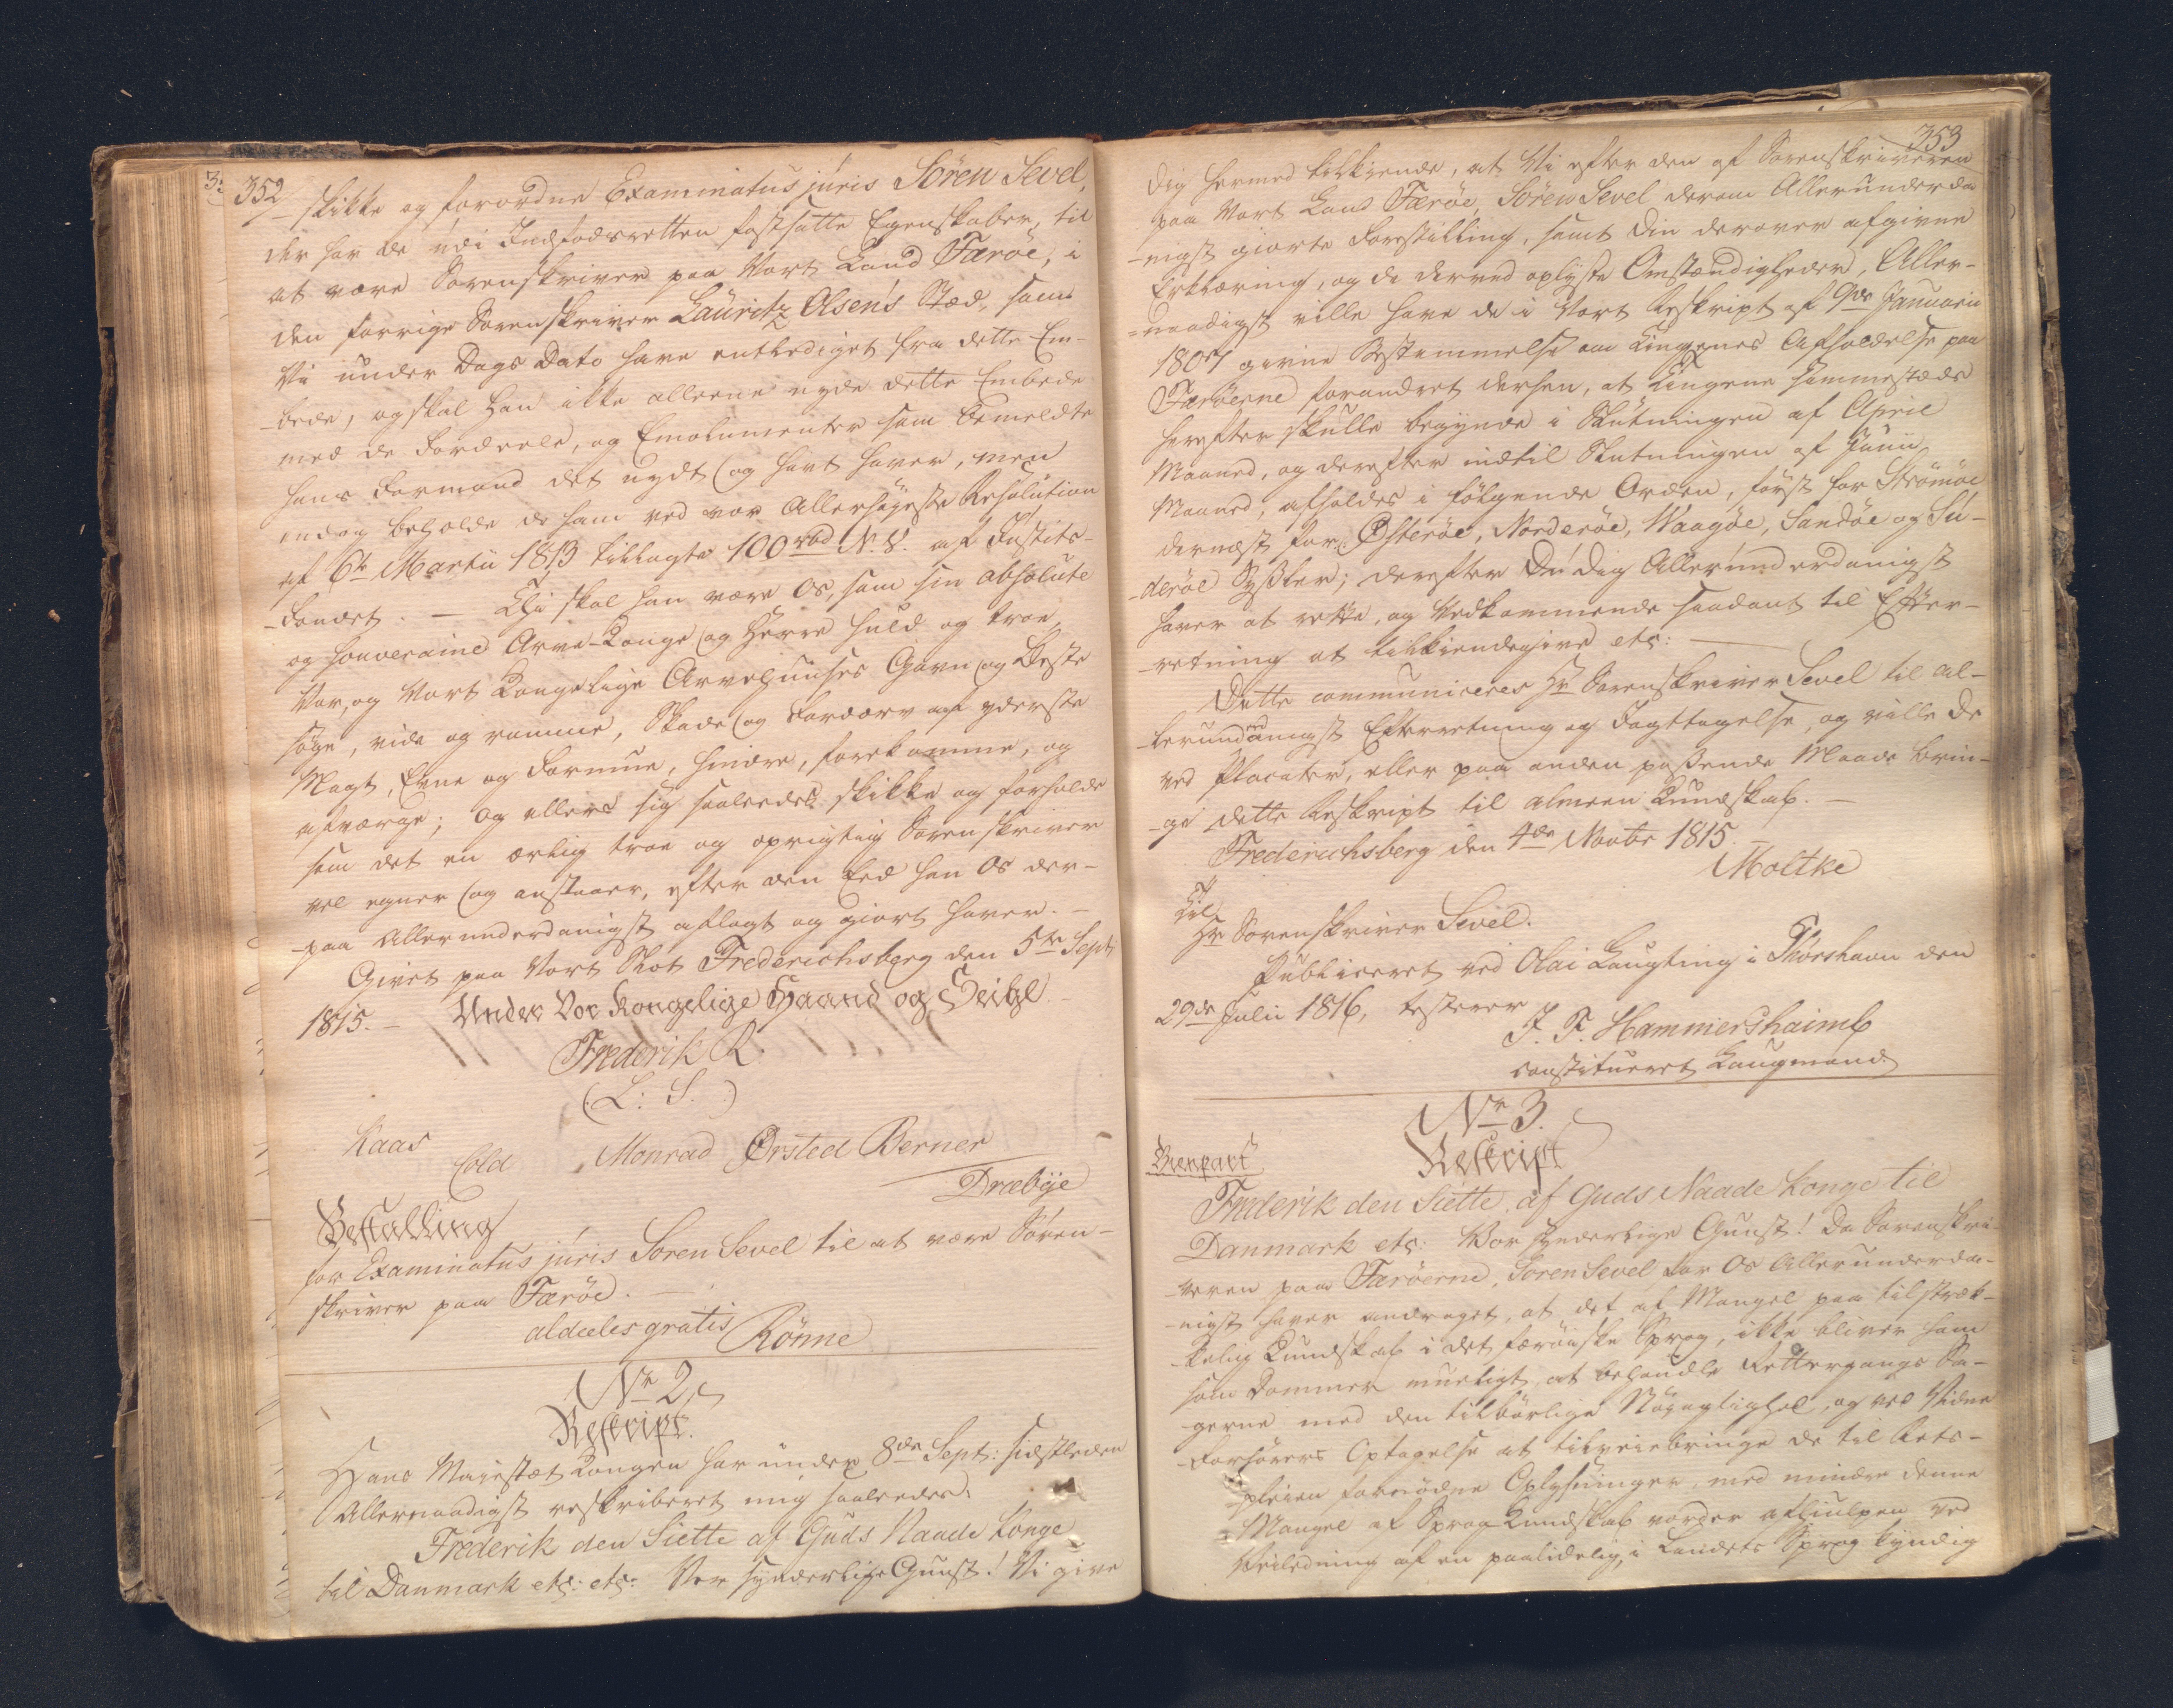 352
skikke og forordne Examinatus juris Sören Sevel,
der har de udi Indfødsretten fastsatte Egenskaber, til
at være Sorenskriver paa Vort Land Færöe, i
den forrige Sorenskriver Lauritz Olsen's Stæd, som
Vi under Dags Dato have entlediget fra dette Em-
-bede, og skal han ikke alleene nyde dette Embede
med de Fordeele, og Emolumenter som bemeldte
hans Formand det nydt og havt haver, men
endog beholde de ham ved vor Allerhøyeste Resolution
af 6te Martii 1813 tillagte 100 rbd N. V. af Justits-
-Fondet. — Thi skal han være Os, som sin absolute
og souveraine Arve-Konge og Herre huld og troe,
Vor, og Vort Kongelige Arvehuuses Gavn og Beste
søge, vide og ramme, Skade og Fordærv af yderste
Magt, Evne og Formue, hindre, forekomme, og
afværge; og ellers sig saaledes skikke og forholde
som det en ærlig troe og oprigtig Sorenskriver
vel egner og anstaaer, efter den Eed han Os der-
-paa Allerunderdanigst aflagt og giort haver. —
Givet paa Vort Slot Frederichsberg den 5te Sept:
1815. — Under Vor Kongelige Haand og Seigl. —
Frederik R.
(L: S.)
Kaas
Cold Monrad Ørsted Berner
Dræbye
Bestalling
for Examinatus juris Sören Sevel til at være Sören-
skriver paa Færöe. —
aldeles gratis Rönne
No 2.
Reskript.
Hans Majestæt Kongen har under 8de Sept: sidstleden
Allernaadigst reskriberet mig saaledes:
Frederik den Siette af Guds Naade Konge
til Danmark etc: etc: Vor synderlige Gunst! Vi give
353
dig hermed tilkiende, at Vi efter den af Sorenskriveren
paa Vort Land Færöe, Sören Sevel derom Allerunderda
-nigst giorte Forestilling, samt din derover afgivne
Erklæring, og de derved oplyste Omstændigheder, Aller-
-naadigst ville have de i Vort Reskript af 9de Januarii
1807 givne Bestemmelse om Tingenes Afholdelse paa
Færöerne forandret derhen, at Tingene sammestæds
herefter skulle begynde i Slutningen af April
Maaned, og derefter indtil Slutningen af Junii
Maaned, afholdes i følgende Orden, først for Strömöe
dernæst for Østeröe, Norderöe, Waagöe, Sandöe og Su-
-deröe Sysler; derefter Du dig Allerunderdanigst
haver at rette, og Vedkommende saadant til Efter-
-retning at tilkiendegive etc: —
Dette communiceres Hr Sorenskriver Sevel til al-
-lerunderdanigst Efterretning og Iagttagelse, og ville De
ved Placater, eller paa anden passende Maade brin-
-ge dette Reskript til almeen Kundskab. —
Frederichsberg den 4de Novbr 1815.
Moltke
Til
Hr Sorenskriver Sevel.
Publiceret ved Olai Laugting i Thorshavn den
29de Julii 1816, testerer
J. F. Hammershaimb
constitueret Laugmand
No 3.
Genpart Reskript
Frederik den Siette, af Guds Naade Konge til
Danmark etc: Vor synderlige Gunst! Da Sorenskri-
-veren paa Færöerne, Sören Sevel for Os Allerunderda-
-nigst haver andraget, at det af Mangel paa tilstræk-
-kelig Kundskab i det færöiske Sprog, ikke bliver ham
som Dommer mueligt, at behandle Rettergangs Sa-
gerne med den tilbørlige Nøyagtighed, og ved Vidne
-Forhørers Optagelse at tilveiebringe de til Rets-
-pleien fornødne Oplysninger, med mindre denne
Mangel af Sprog Kundskab vorder afhiulpen ved
Veiledning af en paalidelig, i Landets Sprog kyndig